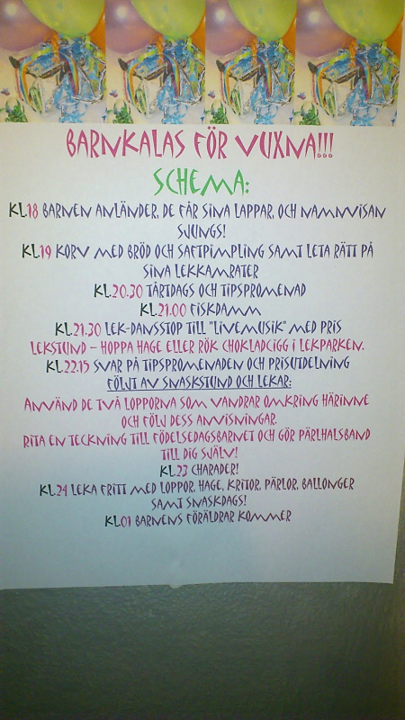 BARNKALAS FÖR VUXNA!!!
SCHEMA:
KL.18 BARNEN ANLÄNDER, DE FÅR SINA LAPPAR, OCH NAMNVISAN
SJUNGS!
KL.19 KORV MED BRÖD OCH SAFTPIMPLING SAMT LETA RÄTT PÅ
SINA LEKKAMRATER
KL.20.30 TÅRTDAGS OCH TIPSPROMENAD
KL.21.00 FISKDAMM
KL.21.30 LEK-DANSSTOP TILL "LIVEMUSIK" MED PRIS
LEKSTUND – HOPPA HAGE ELLER RÖK CHOKLADCIGG I LEKPARKEN.
KL.22.15 SVAR PÅ TIPSPROMENADEN OCH PRISUTDELNING
FÖLJT AV SNASKSTUND OCH LEKAR:
ANVÄND DE TVÅ LOPPORNA SOM VANDRAR OMKRING HÄRINNE
OCH FÖLJ DESS ANVISNINGAR.
RITA EN TECKNING TILL FÖDELSEDAGSBARNET OCH GÖR PÄRLHALSBAND
TILL DIG SJÄLV!
KL.23 CHARADER!
KL.24 LEKA FRITT MED LOPPOR, HAGE, KRITOR, PÄRLOR, BALLONGER
SAMT SNASKDAGS!
KL.01 BARNENS FÖRÄLDRAR KOMMER